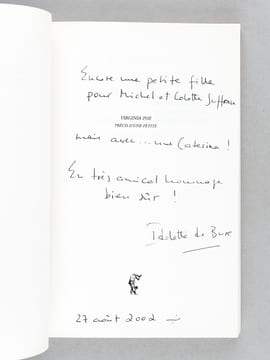 Encore une petite fille
pour Michel et Colette
VIRGINIA POE
PRÉCIS D'UNE PETITE
mais avec... une Caterina !
En très amical hommage
bien sûr !
de
27 août 2002